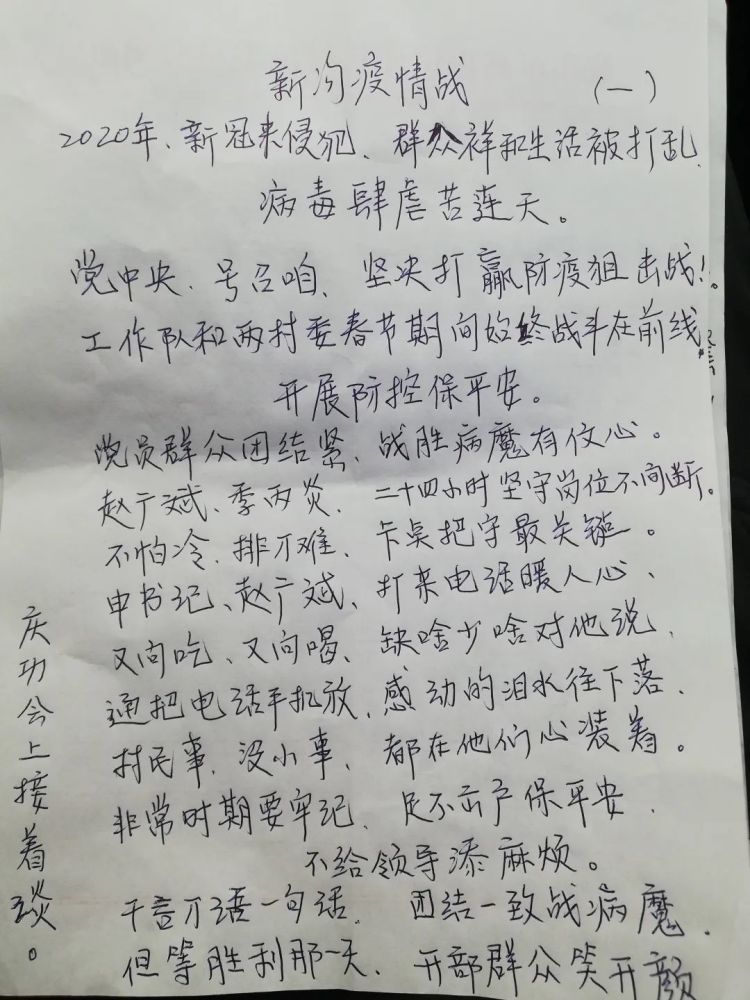 新沟疫情战 (一)
2020年、新冠来侵犯、群众祥和生活被打乱、
病毒肆虐苦连天。
党中央、号召咱、坚决打赢防疫狙击战！。
工作队和两村委春节期间始终战斗在前线
开展防控保平安。
党员群众团结紧、战胜病魔有信心。
赵广斌、季丙炎、二十四小时坚守岗位不间断。
不怕冷、排万难、卡点把守最关键。
申书记、赵广斌、打来电话暖人心、
又问吃、又问喝、缺啥少啥对他说、
通把电话手机放、感动的泪水往下落、
村民事、没小事、都在他们心装着。
非常时期要牢记、足不出户保平安、
不给领导添麻烦。
千言万语一句话、团结一致战病魔、
但等胜利那一天、干部群众笑开颜
庆功会上接着谈。